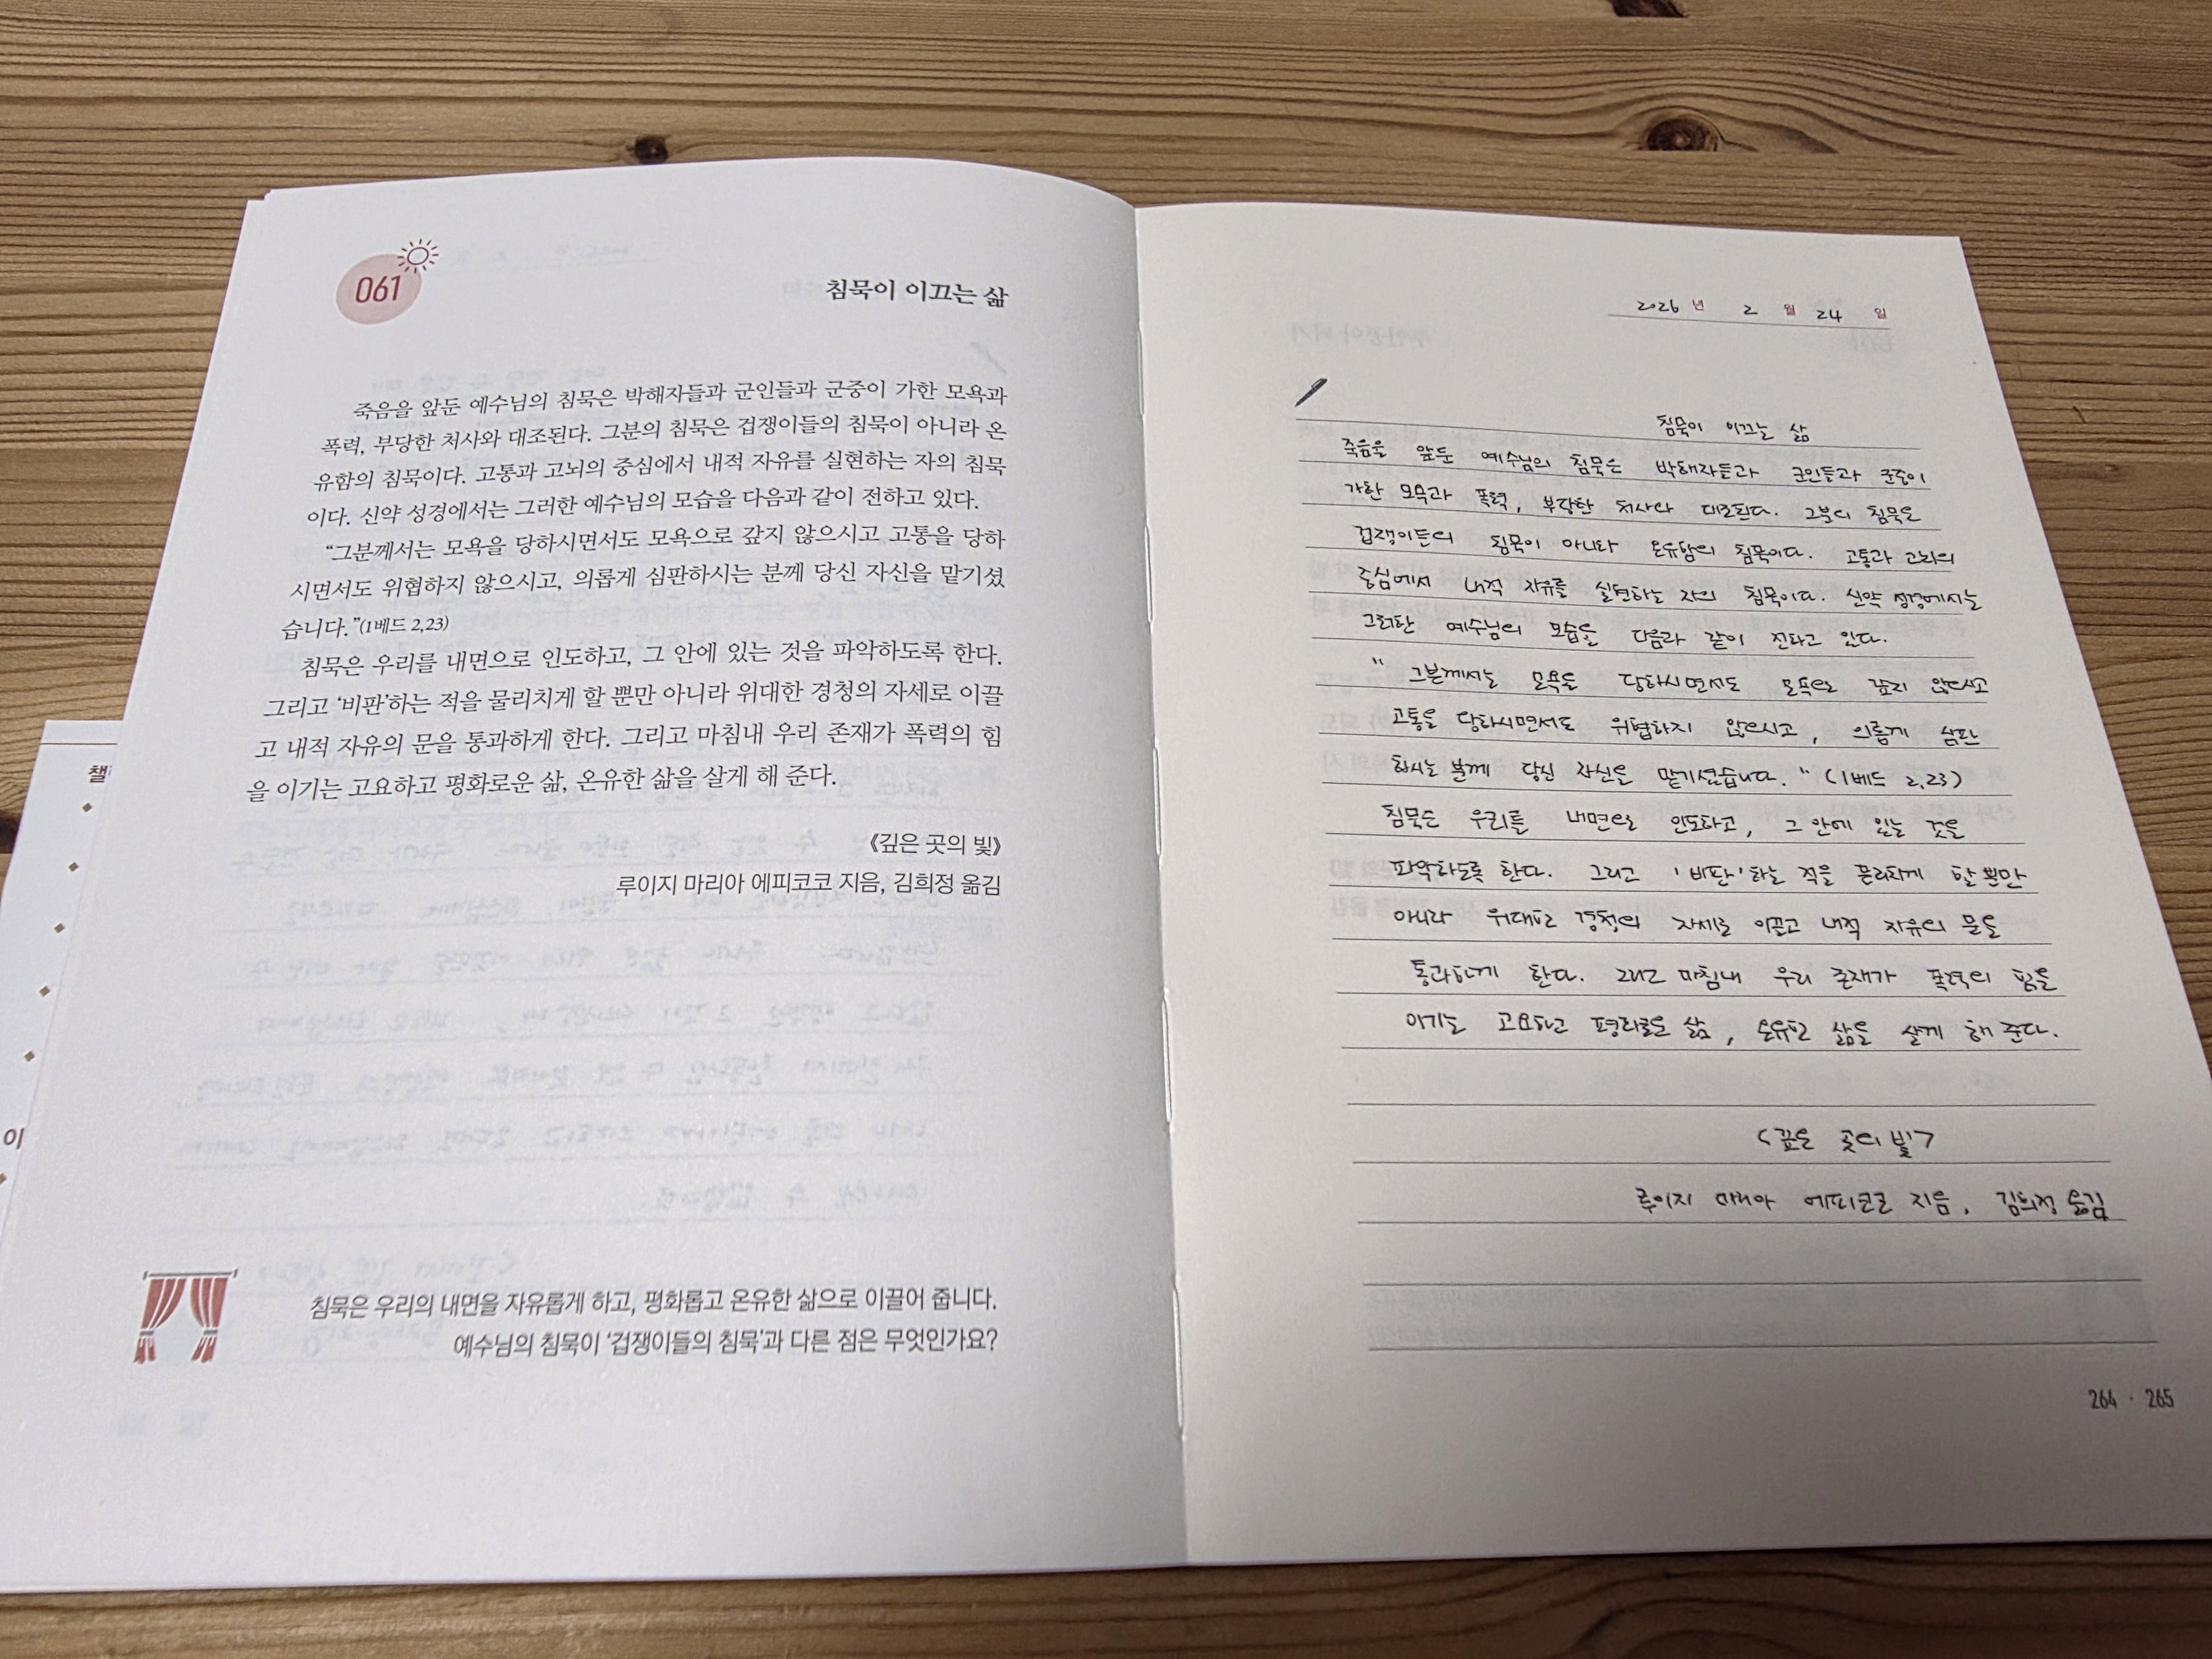 061
침묵이 이끄는 삶
죽음을 앞둔 예수님의 침묵은 박해자들과 군인들과 군중이 가한 모욕과
폭력, 부당한 처사와 대조된다. 그분의 침묵은 겁쟁이들의 침묵이 아니라 온
유함의 침묵이다. 고통과 고뇌의 중심에서 내적 자유를 실현하는 자의 침묵
이다. 신약 성경에서는 그러한 예수님의 모습을 다음과 같이 전하고 있다.
“그분께서는 모욕을 당하시면서도 모욕으로 갚지 않으시고 고통을 당하
시면서도 위협하지 않으시고, 의롭게 심판하시는 분께 당신 자신을 맡기셨
습니다.”(1베드 2,23)
침묵은 우리를 내면으로 인도하고, 그 안에 있는 것을 파악하도록 한다.
그리고 ‘비판’하는 적을 물리치게 할 뿐만 아니라 위대한 경청의 자세로 이끌
고 내적 자유의 문을 통과하게 한다. 그리고 마침내 우리 존재가 폭력의 힘
을 이기는 고요하고 평화로운 삶, 온유한 삶을 살게 해 준다.
《깊은 곳의 빛》
루이지 마리아 에피코코 지음, 김희정 옮김
침묵은 우리의 내면을 자유롭게 하고, 평화롭고 온유한 삶으로 이끌어 줍니다.
예수님의 침묵이 ‘겁쟁이들의 침묵’과 다른 점은 무엇인가요?
챌
이
2026 년 2 월 24 일
침묵이 이끄는 삶
죽음을 앞둔 예수님의 침묵은 박해자들과 군인들과 군중이
가한 모욕과 폭력, 부당한 처사와 대조된다. 그분의 침묵은
겁쟁이들의 침묵이 아니라 온유함의 침묵이다. 고통과 고뇌의
중심에서 내적 자유를 실현하는 자의 침묵이다. 신약 성경에서는
그러한 예수님의 모습을 다음과 같이 전하고 있다.
" 그분께서는 모욕을 당하시면서도 모욕으로 갚지 않으시고
고통을 당하시면서도 위협하지 않으시고, 의롭게 심판
하시는 분께 당신 자신을 맡기셨습니다. " (1베드 2,23)
침묵은 우리를 내면으로 인도하고, 그 안에 있는 것을
파악하도록 한다. 그리고 '비판'하는 적을 물리치게 할 뿐만
아니라 위대한 경청의 자세로 이끌고 내적 자유의 문을
통과하게 한다. 그리고 마침내 우리 존재가 폭력의 힘을
이기는 고요하고 평화로운 삶, 온유한 삶을 살게 해 준다.
<깊은 곳의 빛>
루이지 마리아 에피코코 지음, 김희정 옮김
264 · 265